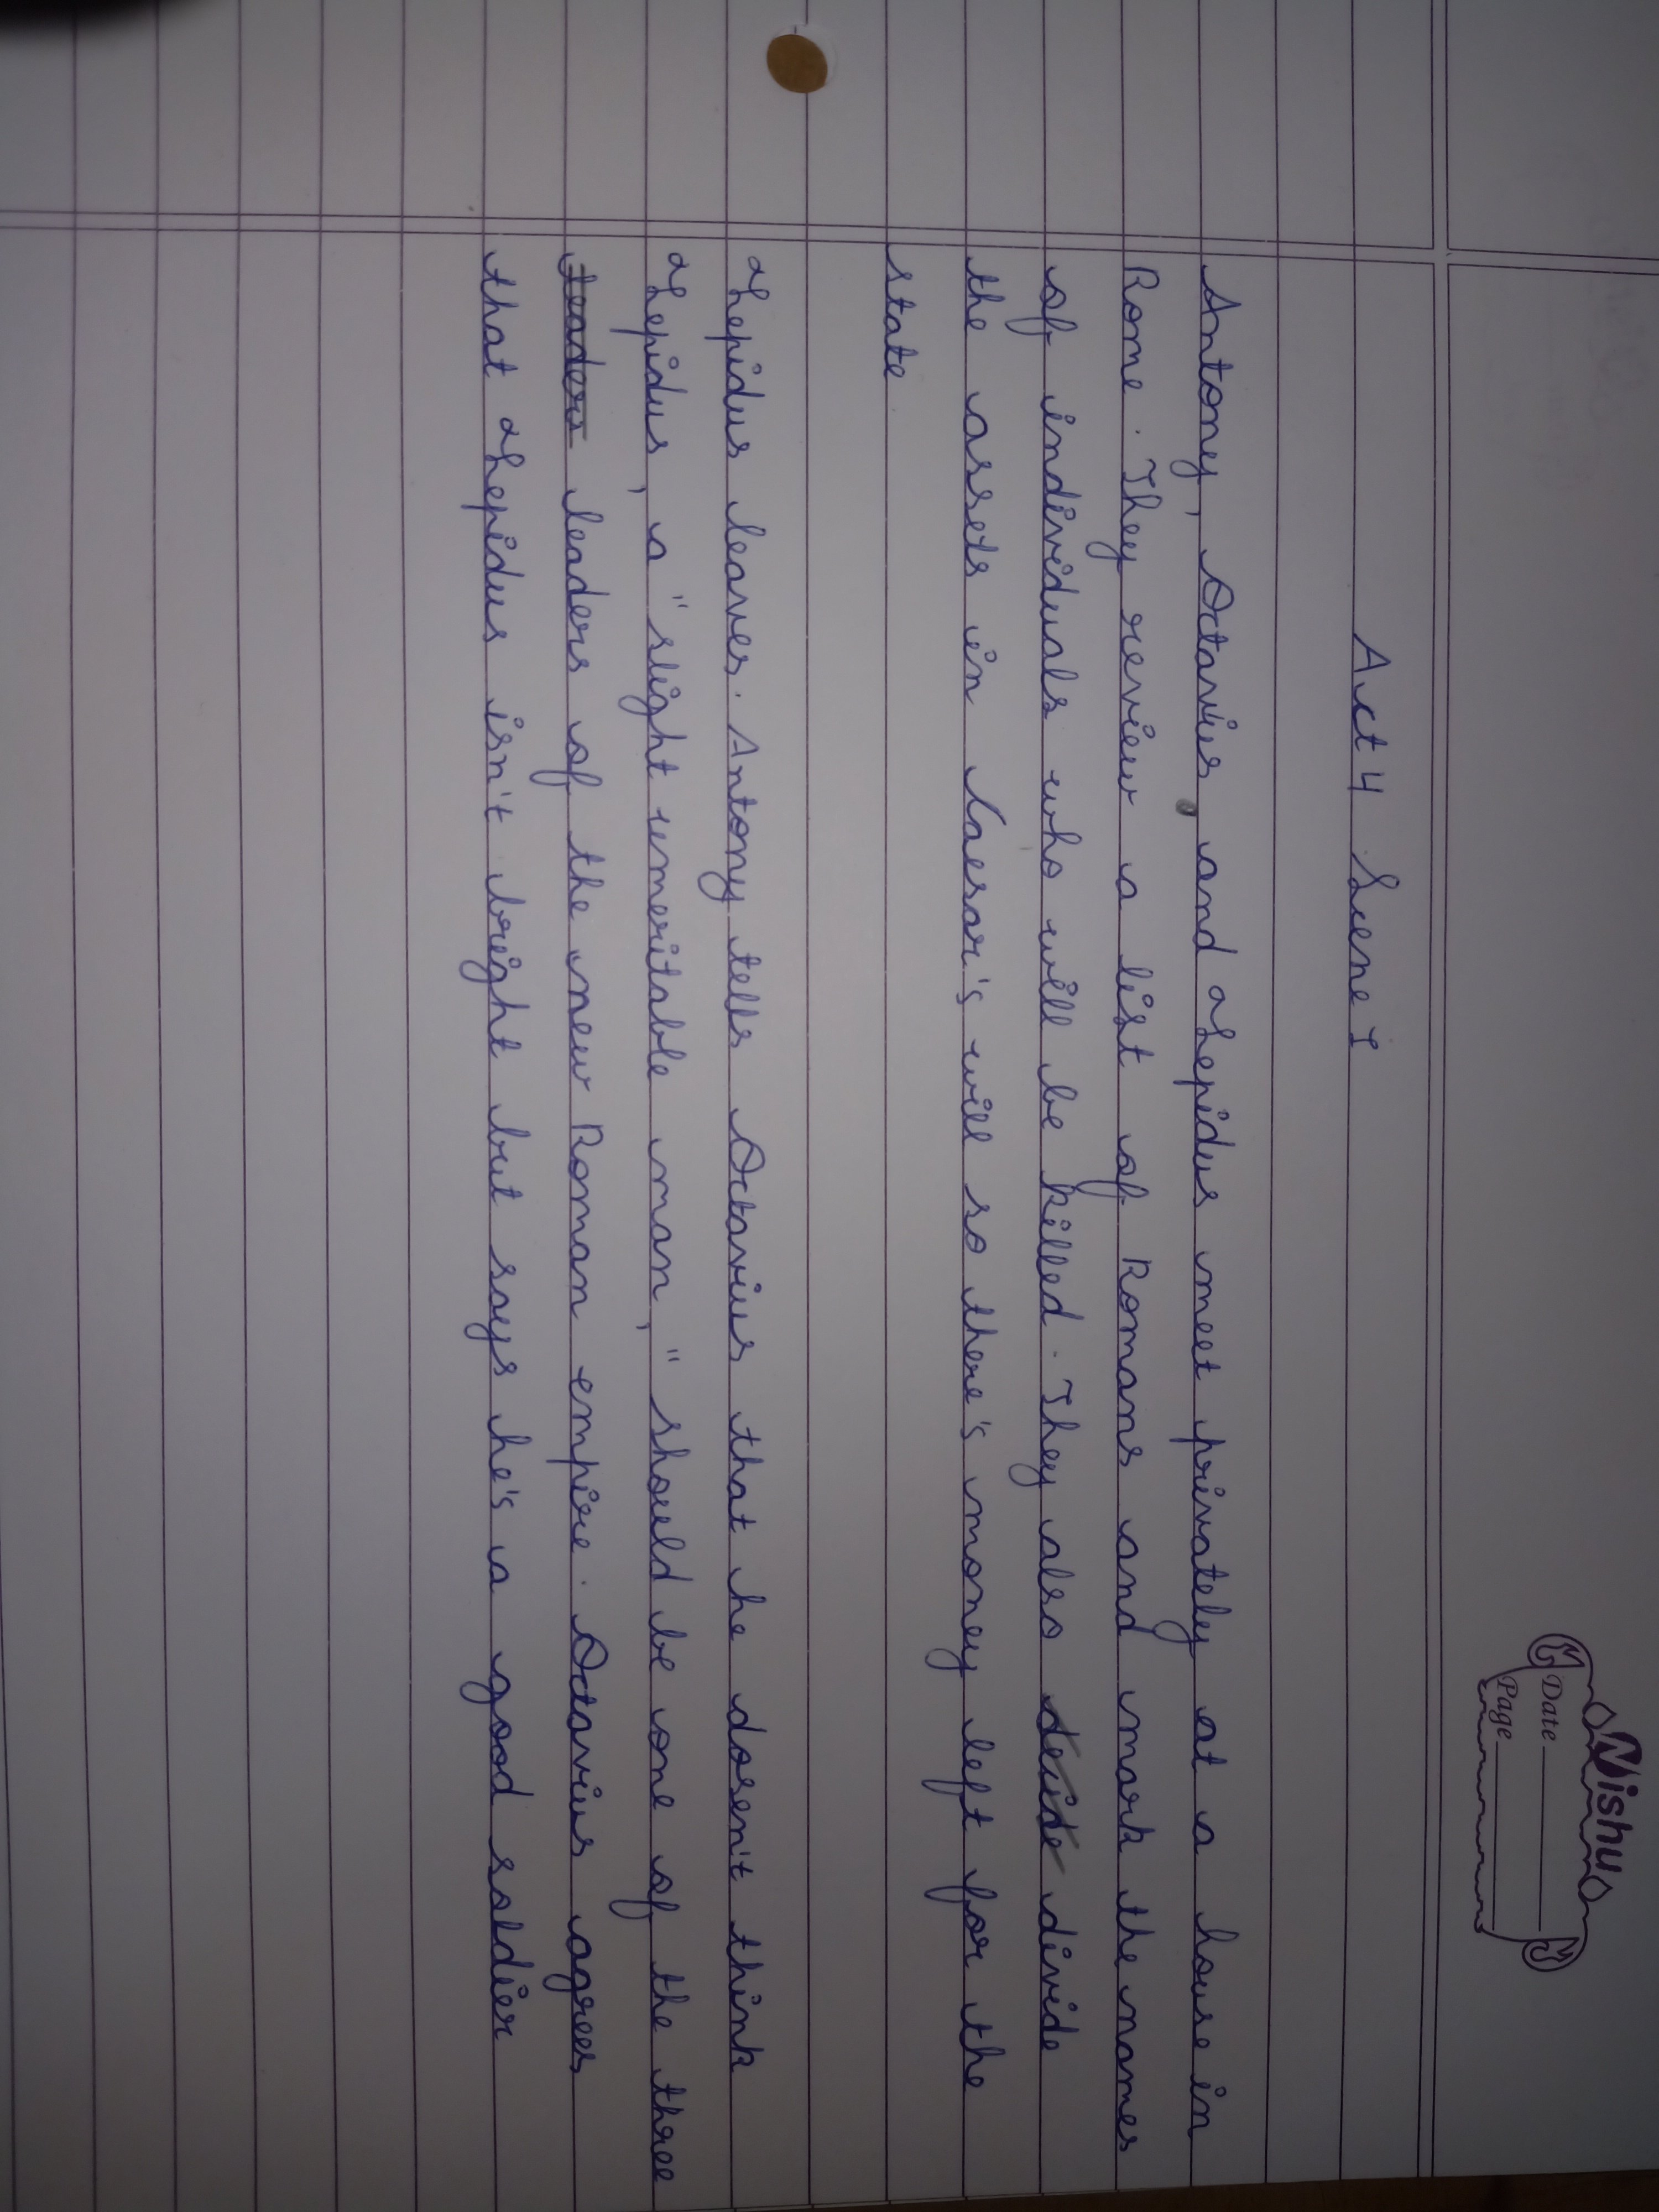 Nishu
Date
Page
Act 4 Scene 1
Antony, Octavius, and Lepidus meet privately at a house in
Rome. They review a list of Romans and mark the names
of individuals who will be killed. They also decide divide
the assets in Caesar's will so there's money left for the
state
Lepidus leaves. Antony tells Octavius that he dosen't think
Lepidus, a "slight umeritable man," should be one of the three
leaders of the new Roman empire. Octavius agrees
that Lepidus isn't bright but says he's a good soldier